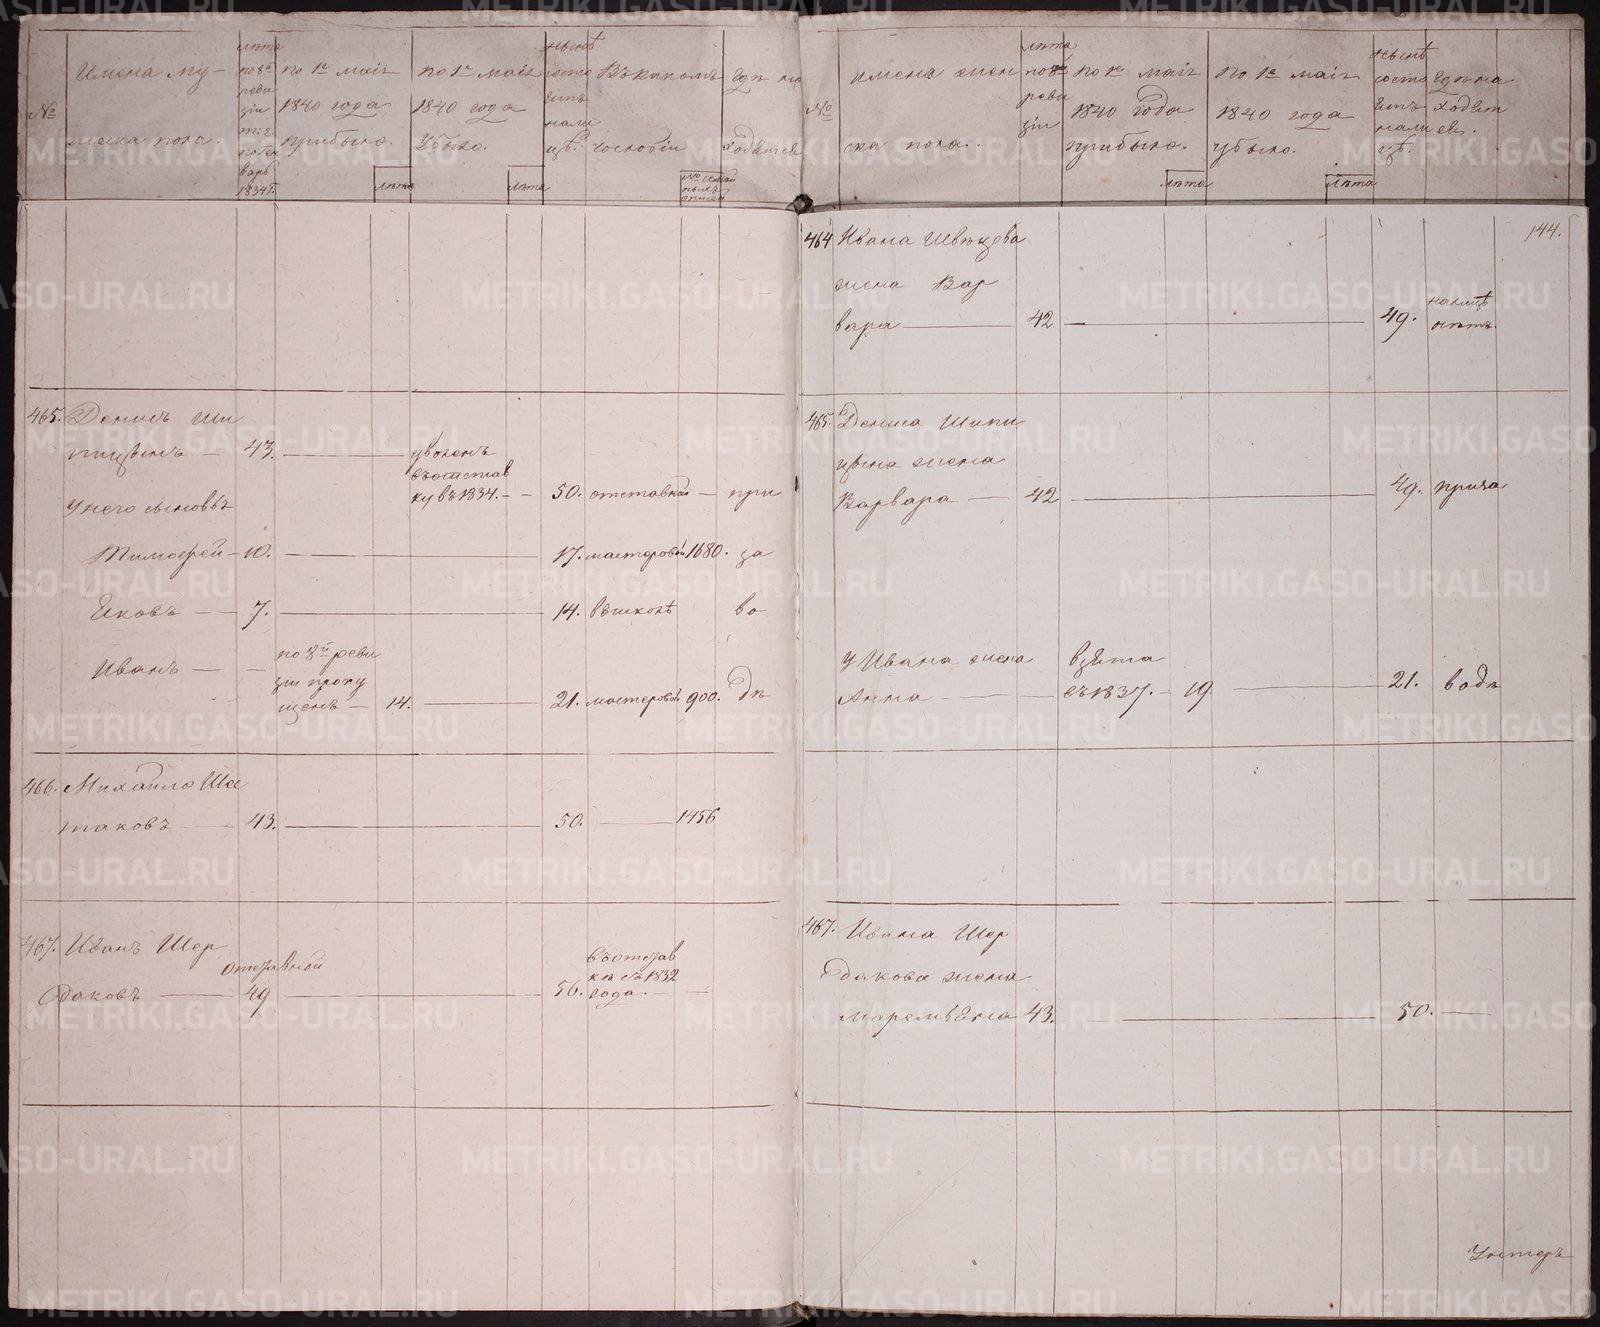 №
Имена му-
жска пола.
лѣта
по 8й
реви
зіи
1834 г.
по 1е маія
1840 года
прибыло.
лѣта
по 1е маія
1840 года
убыло.
лѣта
нынѣ
состо
итъ
нали
цѣ.
Въ какомъ
сословіи
Гдѣ на
ходятся
№
Имена жен
ска пола.
лѣта
по 8й
реви
зіи
по 1е маія
1840 года
прибыло.
лѣта
По 1е маія
1840 года
убыло.
лѣта
нынѣ
состо
итъ
нали
цѣ.
Гдѣ на
ходят
ся.
144.
464 Ивана Швецова
жена Вар
вара — 42 — 49. налицѣ
нѣтъ.
465. Денисъ Ши
пицынъ — 43. — уволенъ
въ отстав
ку въ 1834. — 50. отставной — при
У него сыновья
Тимофей — 10. — 17. мастеровой 1680. за
Яковъ — 7. — 14. въ школѣ во
Иванъ — по 8й реви
зіи пропу
щенъ — 14. — 21. мастеровой 900. дѣ
465. Дениса Шипи
цына жена
Варвара — 42 — 49. при за
У Ивана жена взята
Анна — съ 1837. — 19. — 21. водѣ
466. Михайло Шес
таковъ — 43. — 50. — 1456
467. Иванъ Шер
даковъ — отставной
49 — 56. въ отстав
кѣ съ 1832
года. —
467. Ивана Шер
дакова жена
Маремьяна 43. — 50. —
METRIKI.GASO-URAL.RU